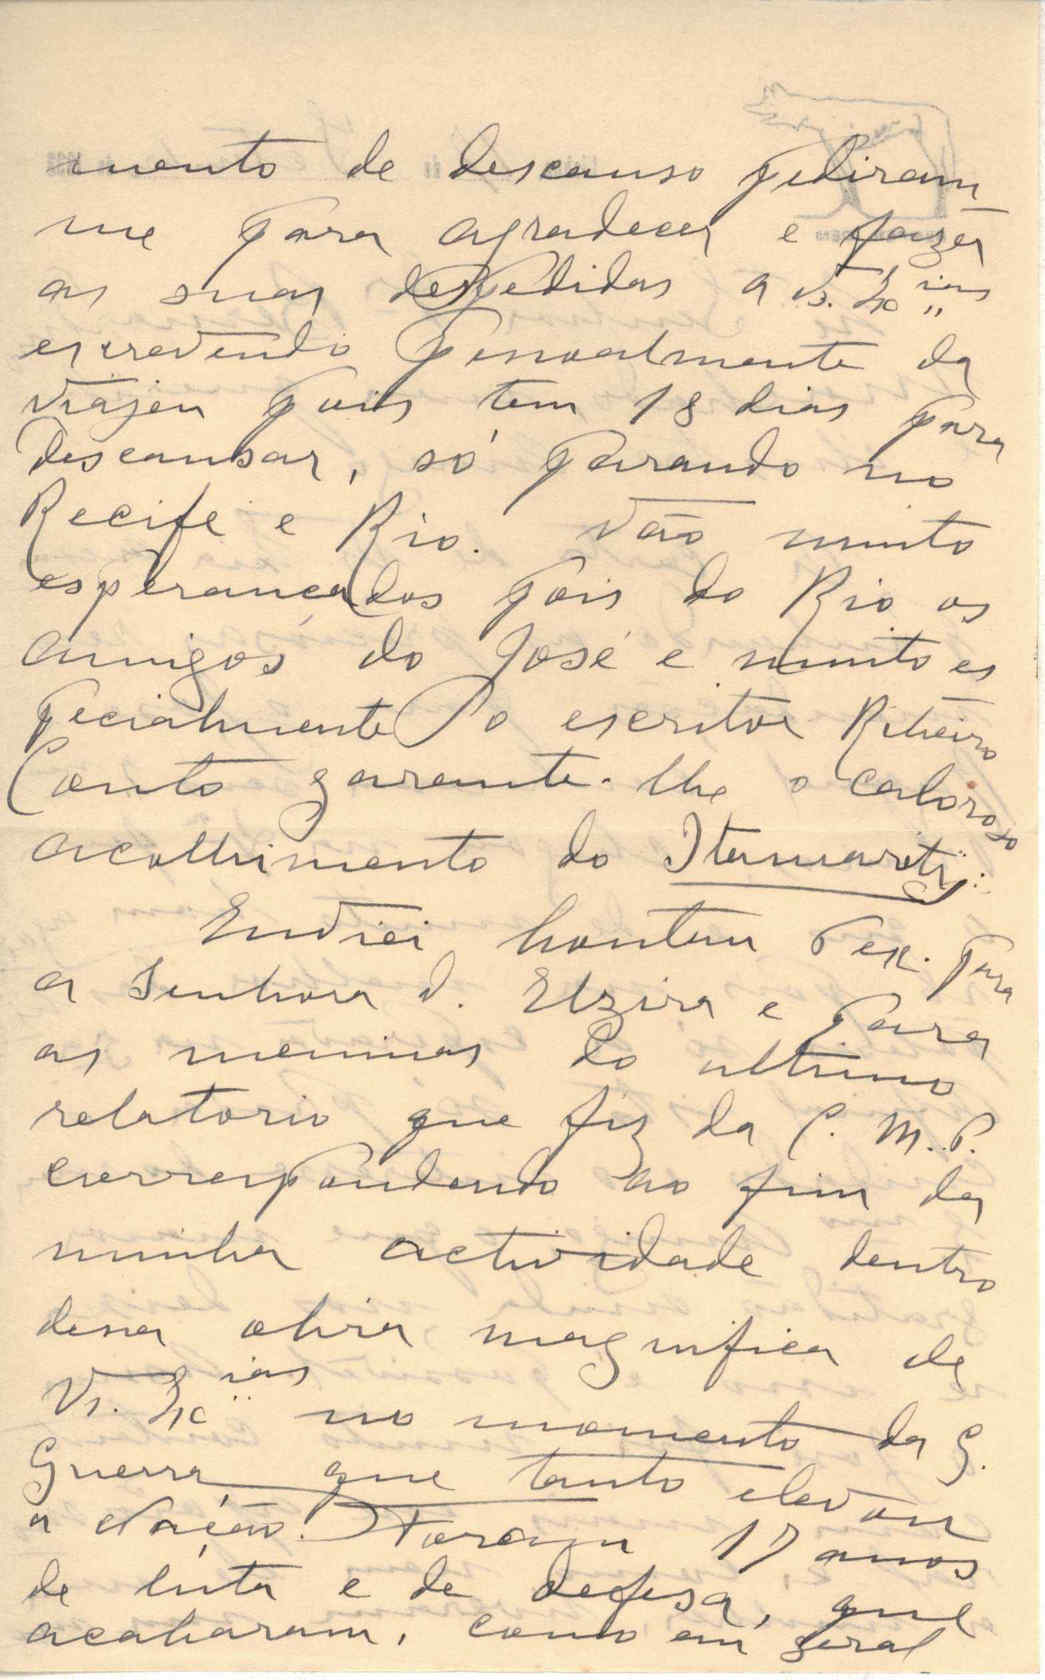 mento de descanso pediram
me para agradecer e fazer
as suas despedidas a Vs. Ex.ias
escrevendo pessoalmente da
viajen pois tem 18 dias para
descansar, só parando no
Recife e Rio. Vão muito
esperançados pois do Rio os
amigos do José e muito es
pecialmente o escritor Ribeiro
Couto garante-lhe o caloroso
acolhimento do Itamarity.
Enviei hontem 6 ex. para
a Senhora D. Elzira e para
as meninas do ultimo
relatorio que fiz da C. M. P.
correspondendo ao fim da
minha actividade dentro
dessa obra magnifica de
Vs. Ex.ias no momento da G.
Guerra que tanto elevou
a Nação. Foram 17 anos
de luta e de defesa, que
acabaram, como em geral